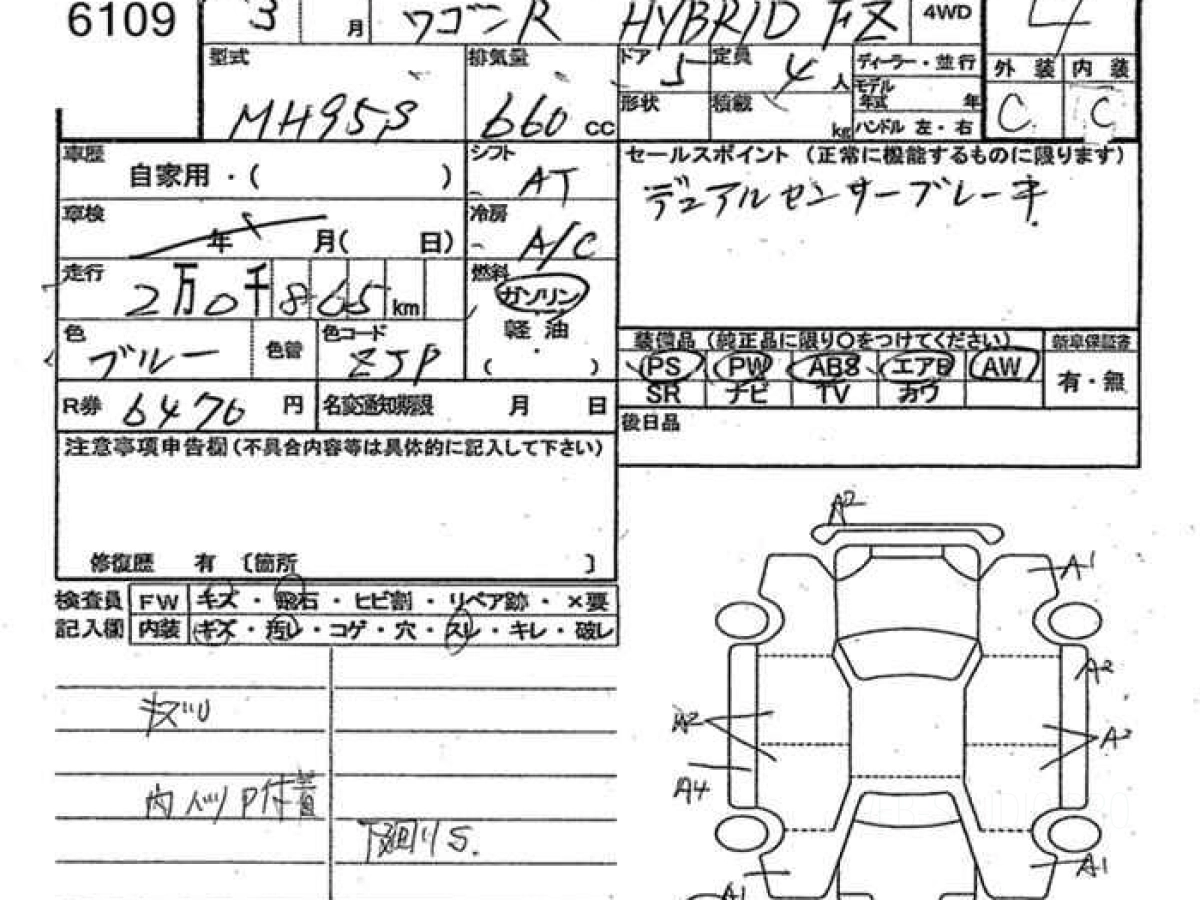 6109 3月 ワゴンR HYBRID FZ 4WD 4
型式 MH95S 排気量 660 cc
ドア 5 定員 4人 ディーラー・並行
形状 積載 kg モデル年式 年
ハンドル 左・右
外装 内装
C C
車歴 自家用・( )
シフト AT
セールスポイント (正常に機能するものに限ります)
デュアルセンサーブレーキ
車検 年 月( 日)
冷房 A/C
走行 2万0千865km
燃料 ガソリン
軽油
( )
色 ブルー 色替 色コード ZJP
装備品 (純正品に限り〇をつけてください) 新車保証書
PS PW ABS エアB AW 有・無
SR ナビ TV カワ
R券 6470 円 名変通知期限 月 日
後日品
注意事項申告欄(不具合内容等は具体的に記入して下さい)
修復歴 有 〔箇所 〕
検査員 FW キズ・飛石・ヒビ割・リペア跡・×要
記入欄 内装 キズ・汚レ・コゲ・穴・スレ・キレ・破レ
キズU
付着
下廻りS.
A2
A1
A2
A2
A2
A4
A1
A1